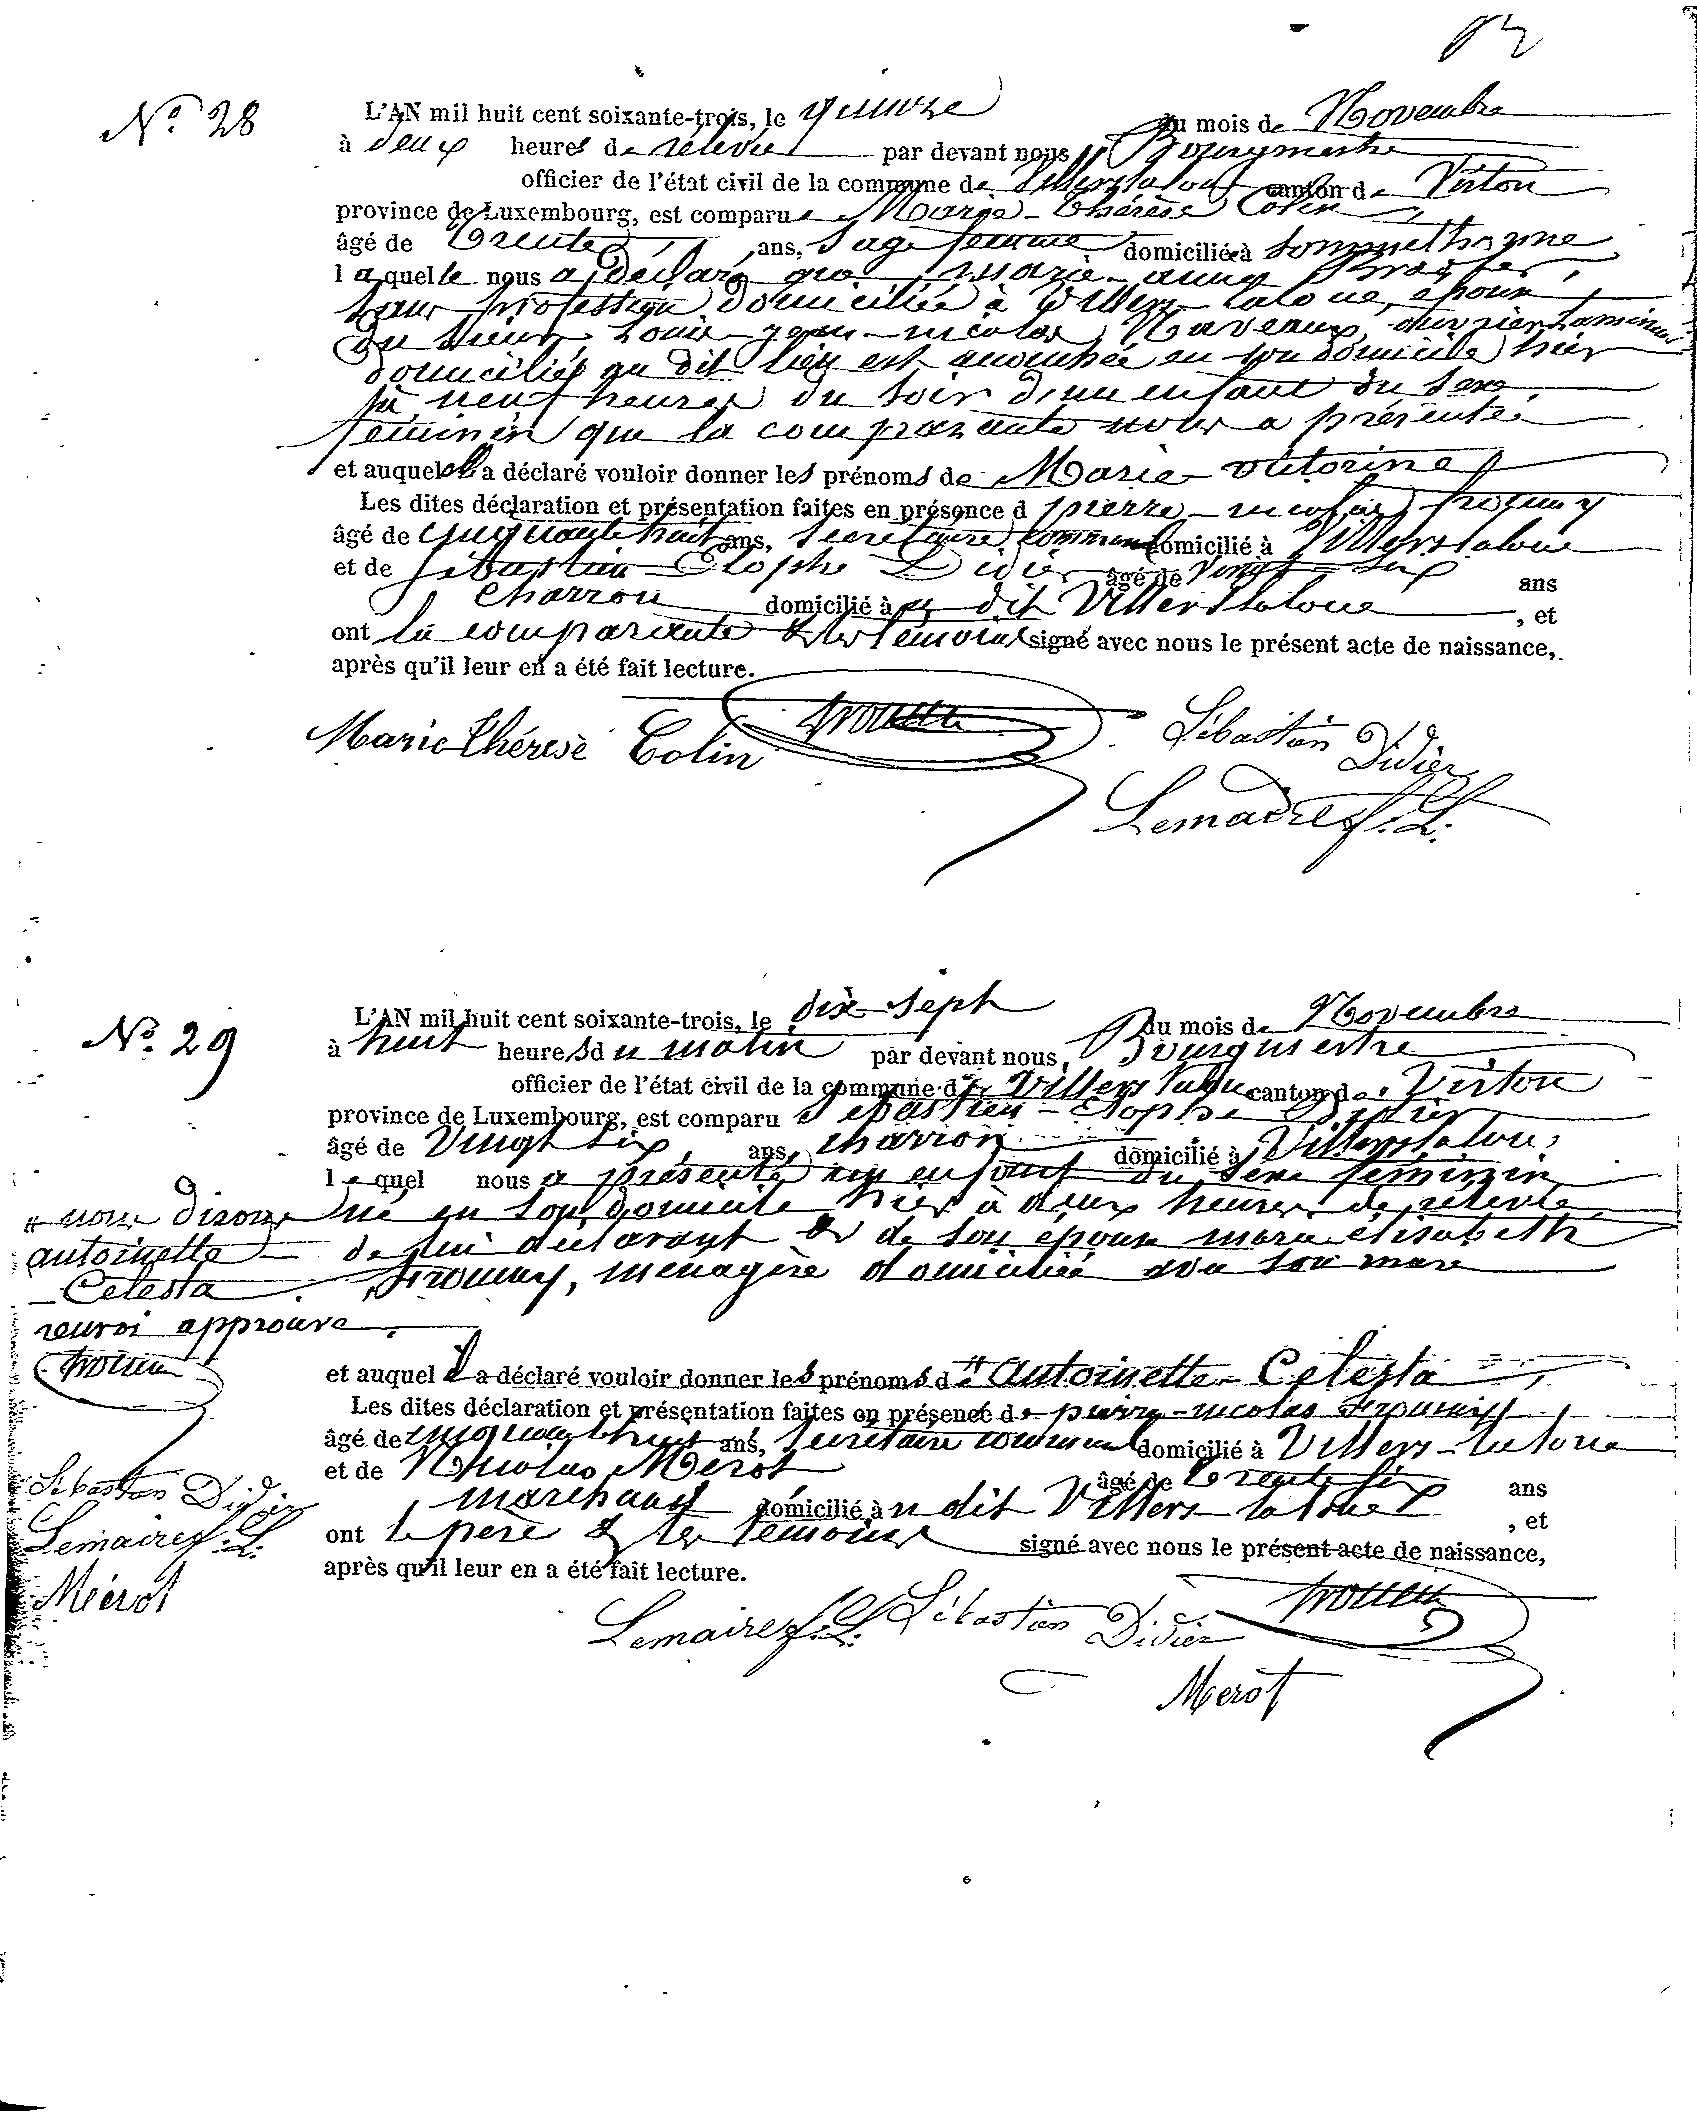 N° 28
L'AN mil huit cent soixante-trois, le quinze du mois de Novembre
à deux heures de relevée par devant nous, Bourgmestre
officier de l'état civil de la commune de Villerslaloue canton de Virton
province de Luxembourg, est comparue Marie-Thérèse Colin
âgé de trente ans, sage femme domiciliée à Sommethonne
laquelle nous a déclaré que marie-anne
sans profession domiciliée à Villers-laloue, épouse
du sieur Louis-jean-nicolas Naveaux, ouvrier
domiciliés au dit lieu est accouchée en son domicile hier
à neuf heures du soir d'un enfant du sexe
féminin que la comparante nous a présenté
et auquel elle a déclaré vouloir donner les prénoms de Marie-victorine
Les dites déclaration et présentation faites en présence d pierre-nicolas
âgé de cinquante huit ans, secrétaire communal domicilié à Villerslaloue
et de Sébastien-Elophe Didier âgé de vingt-six ans
charron domicilié à au dit Villerslaloue, et
ont la comparante & les témoins signé avec nous le présent acte de naissance,
après qu'il leur en a été fait lecture.
Marie Thérèse Colin Sébastien Didier
Lemaire f. L.
N° 29
L'AN mil huit cent soixante-trois, le dix-sept du mois de Novembre
à huit heures du matin par devant nous, Bourgmestre
officier de l'état civil de la commune de Villerslaloue canton de Virton
province de Luxembourg, est comparu Sébastien-Elophe Didier
âgé de vingt six ans, charron domicilié à Villerslaloue,
lequel nous a présenté un enfant du sexe féminin
né en son domicile hier à deux heures de relevée
de lui déclarant & de son épouse marie élisabeth
ménagère domiciliée avec son mari
et auquel il a déclaré vouloir donner les prénoms de " Antoinette-Celesta
Les dites déclaration et présentation faites en présence de pierre-nicolas
âgé de cinquante huit ans, secrétaire communal domicilié à Villers-laloue
et de Nicolas Mérot âgé de trente six ans
marchand domicilié à au dit Villers-laloue, et
ont le père & les témoins signé avec nous le présent acte de naissance,
après qu'il leur en a été fait lecture.
Lemaire f. L. Sébastien Didier
Merot
" nous disons
antoinette
-Celesta
renvoi approuvé
Sébastien Didier
Lemaire f. L.
Mérot